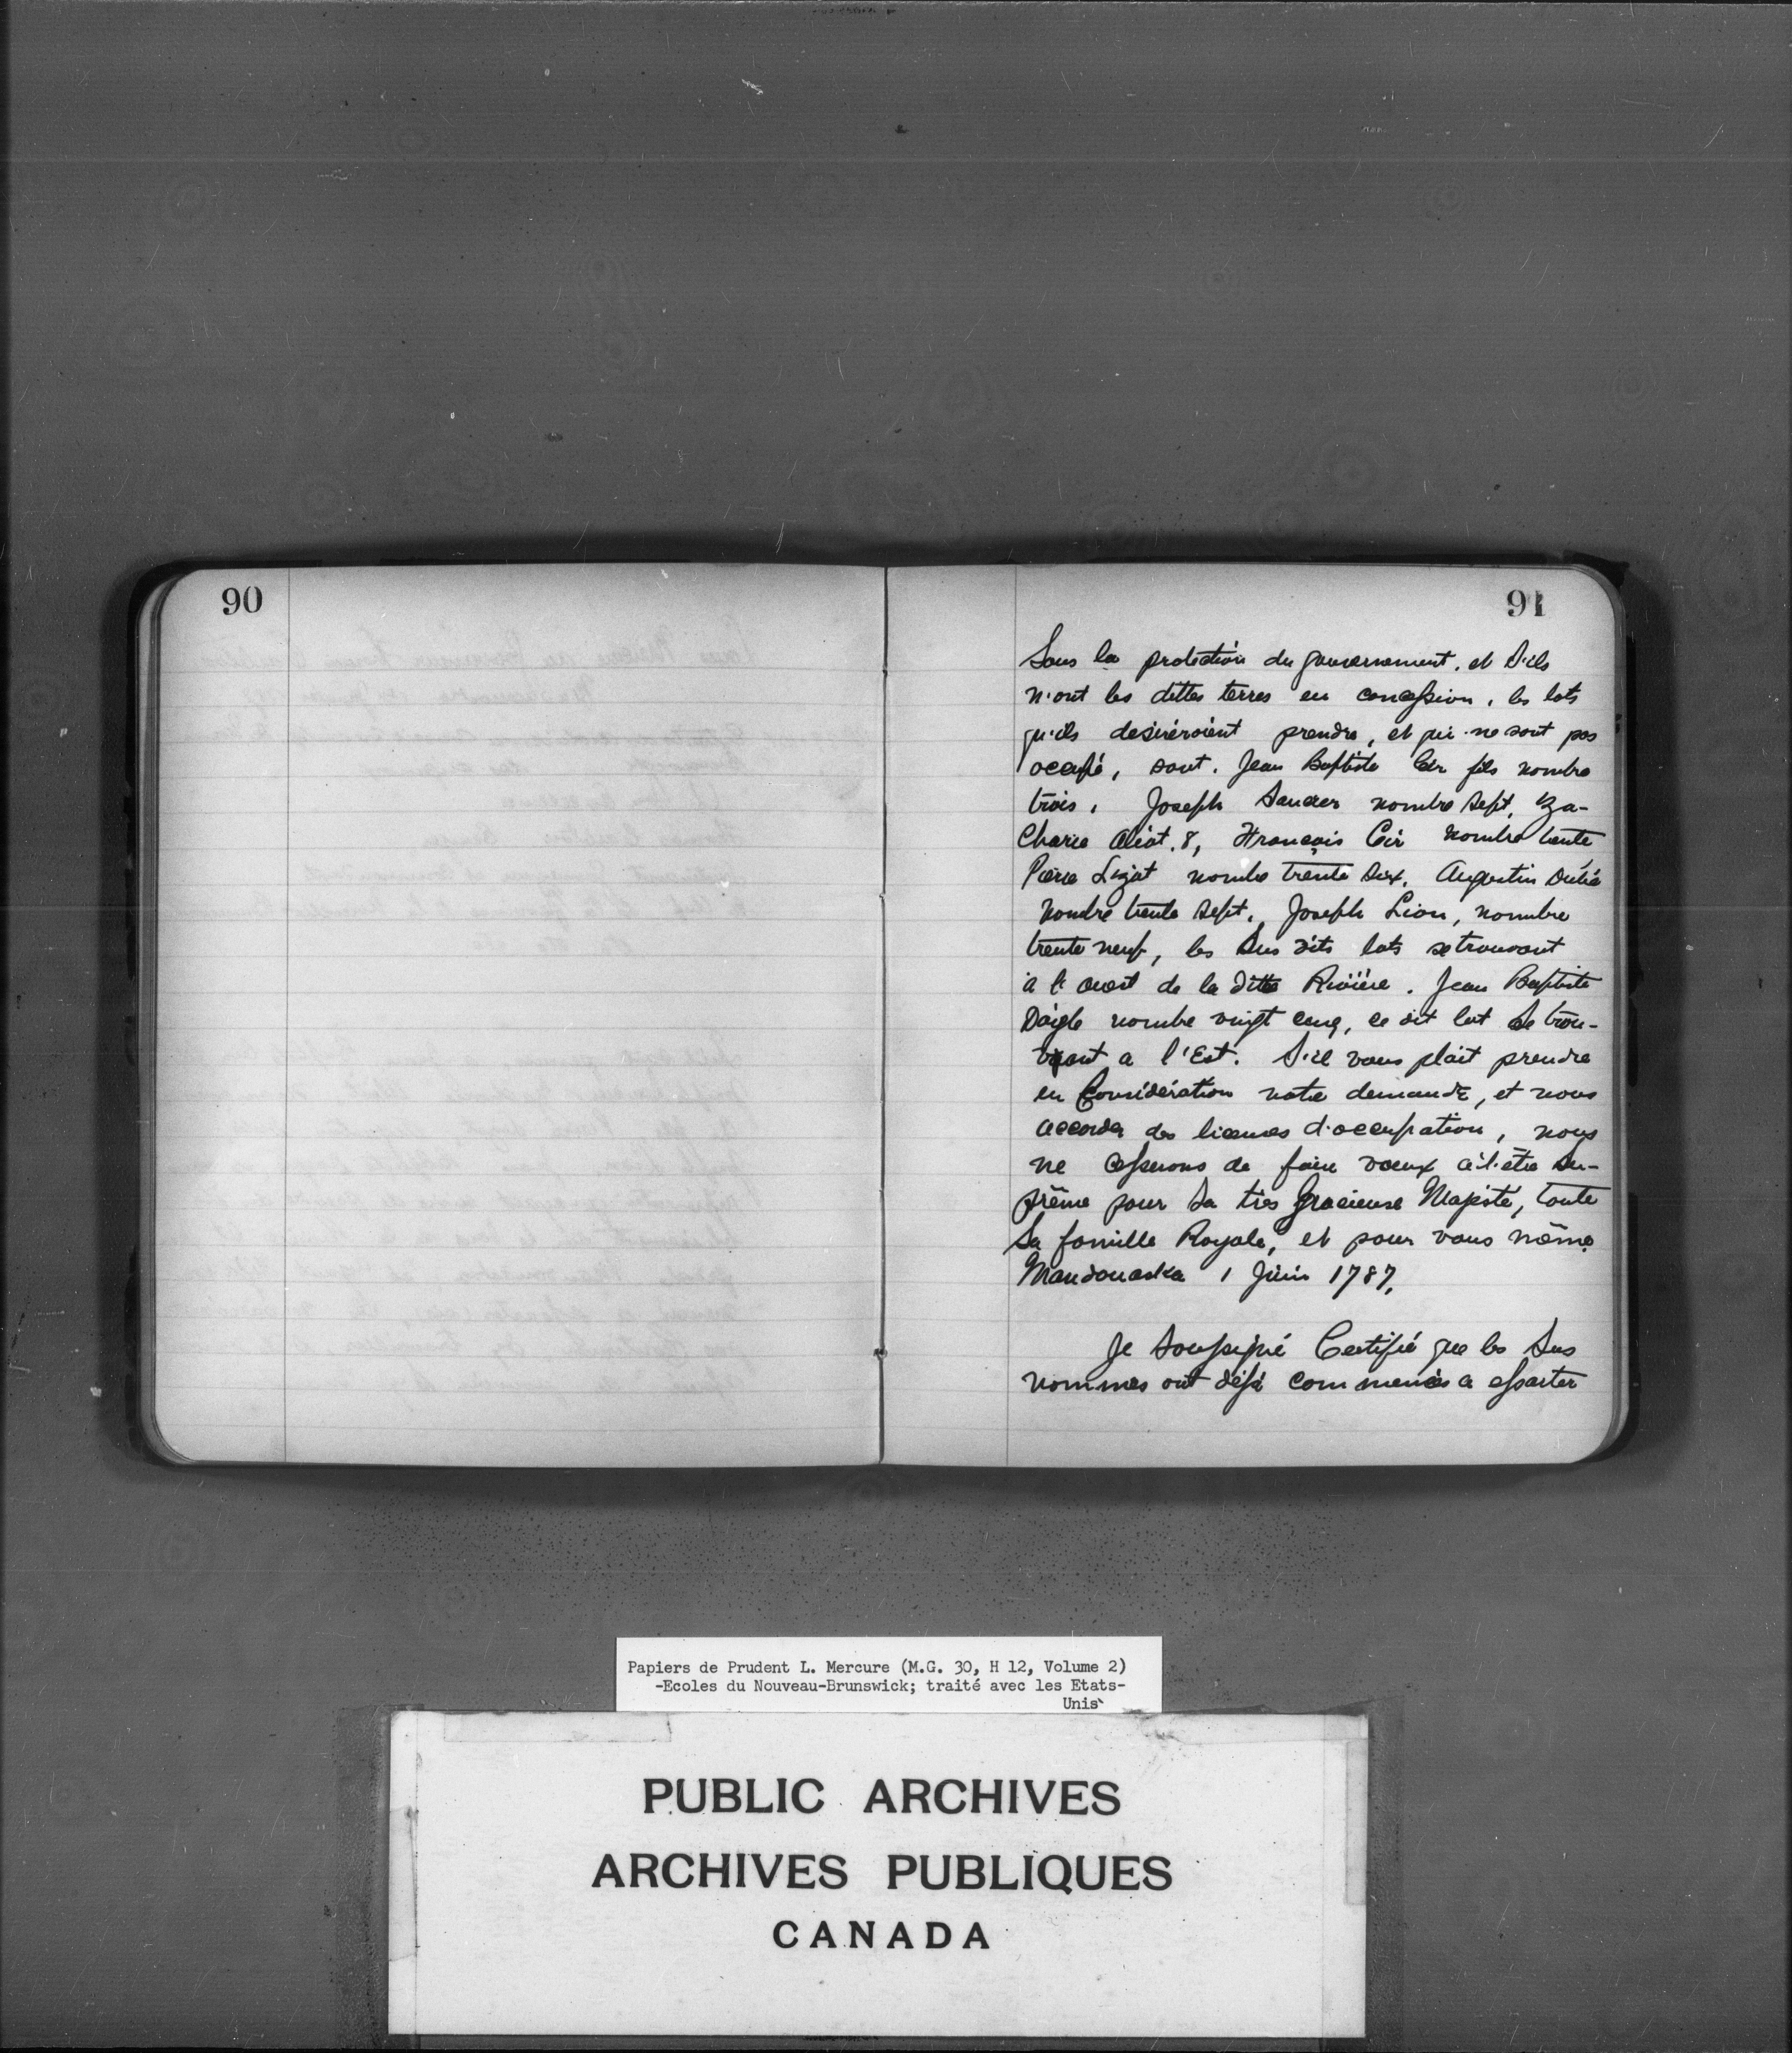 90
91
Sous la protection du gouvernement. et S'ils
n'ont les dittes terres en concession, les lots
qu'ils desireroient prendre, et qui ne sont pas
occupé, sont. Jean Baptiste Cir fils nombre
trois, Joseph Saucier nombre Sept, Za-
Charie Aiot, 8, François Cir Nombre trente
Pierre Lizot nombre trente Six, Augustin Dubé
Nombre trente Sept, Joseph Lion, nombre
trente neuf, les Sus dits lots se trouvant
à l'ouest de la ditte Rivière. Jean Baptiste
Daigle nombre vingt cinq, ce dit lot Se trou-
vant a l'Est. S'il vous plait prendre
en Considération notre demande, et nous
accorder des licenses d'occupation, nous
ne cesserons de faire voeux à l'être Su-
prême pour Sa très Gracieuse Majesté, toute
Sa famille Royale, et pour vous même
Mandouaska 1 Juin 1787.
Je Soussigné Certifié que les Sus
nommes ont déjà commencés a essarter
Papiers de Prudent L. Mercure (M.G. 30, H 12, Volume 2)
-Ecoles du Nouveau-Brunswick; traité avec les Etats-
Unis
PUBLIC ARCHIVES
ARCHIVES PUBLIQUES
CANADA